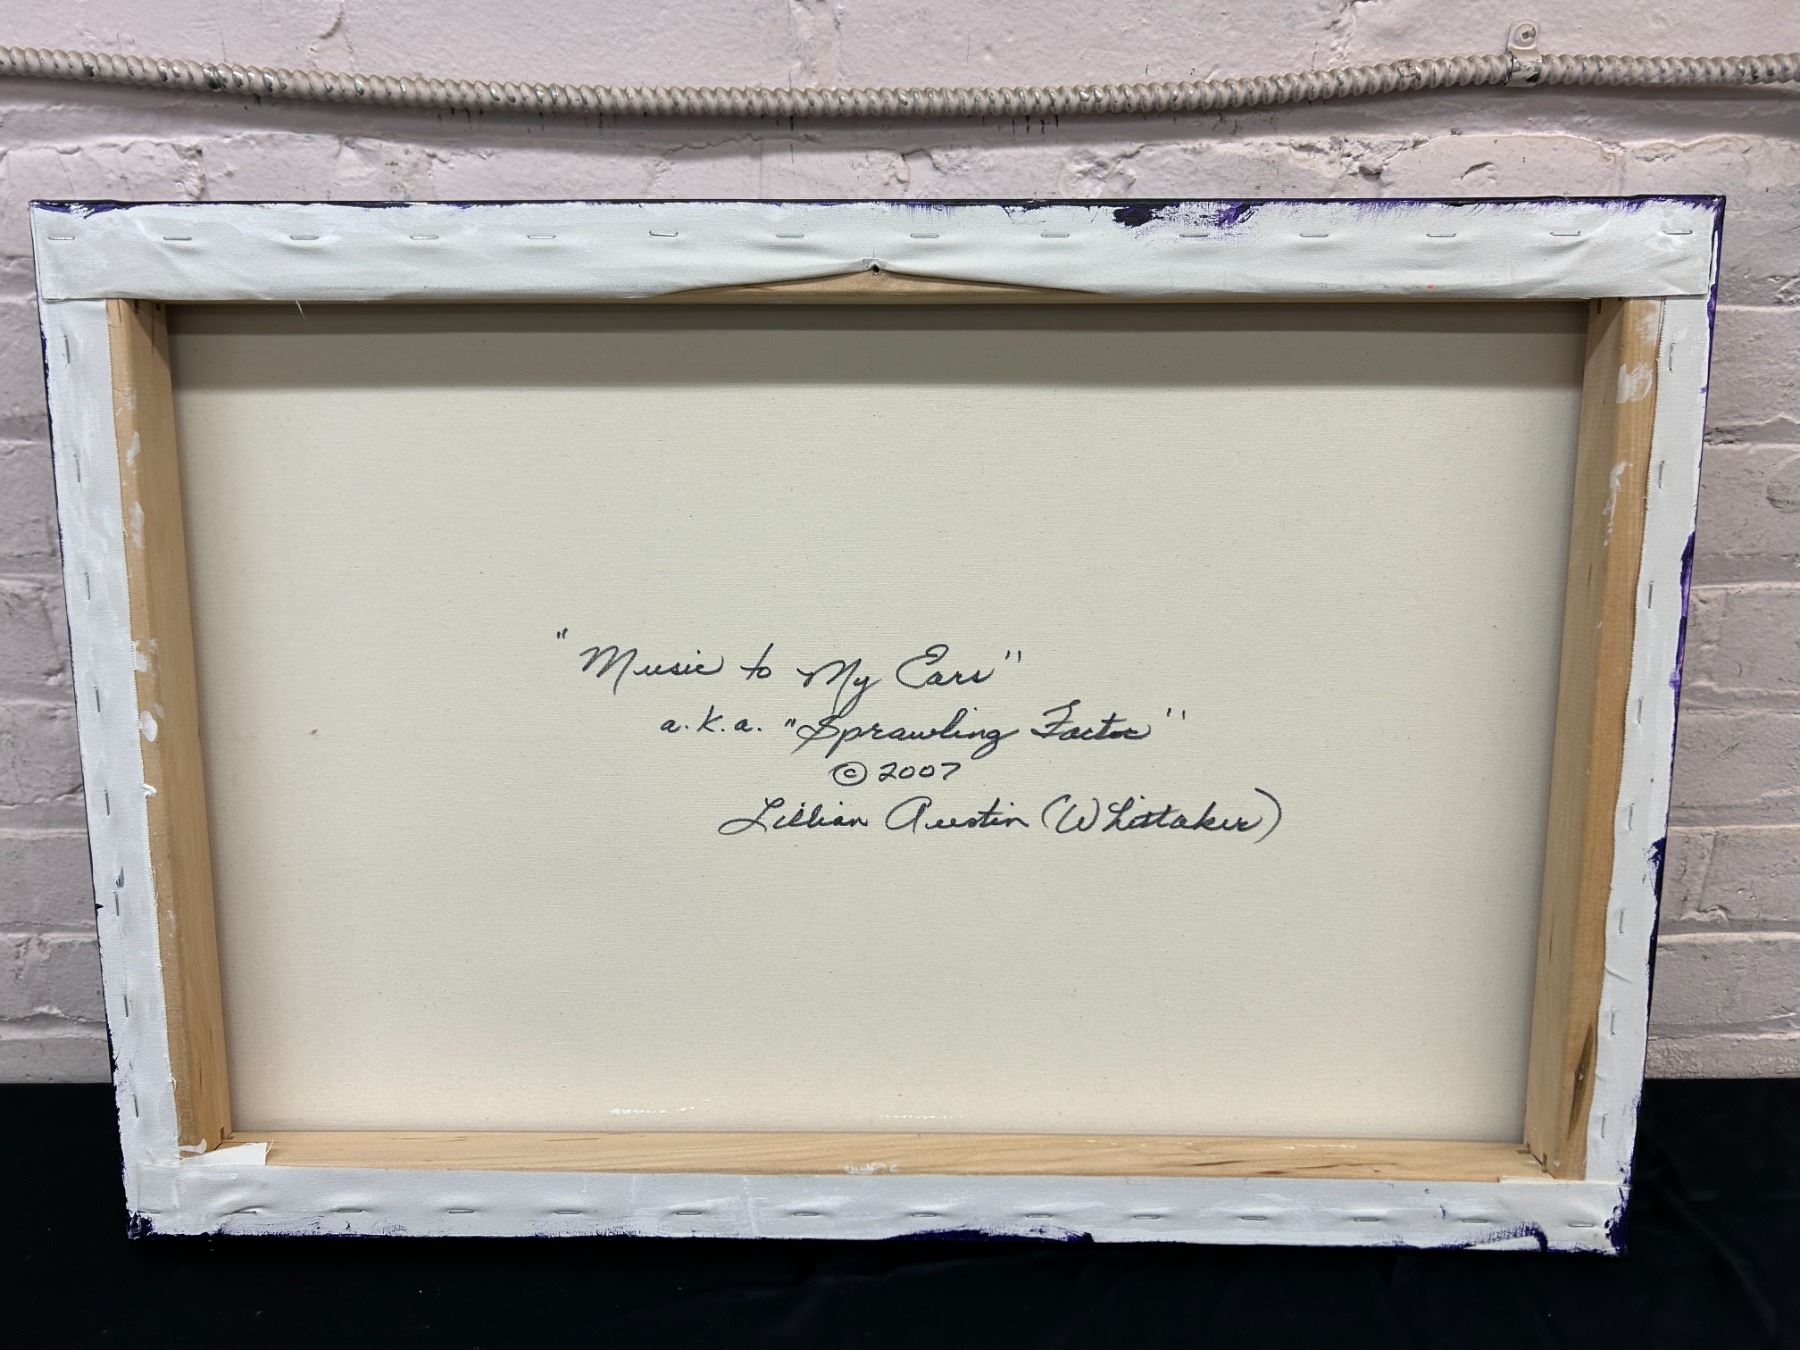 "Music to My Ears"
a.k.a. "Sprawling Factor"
© 2007
Lillian Austin (Whittaker)